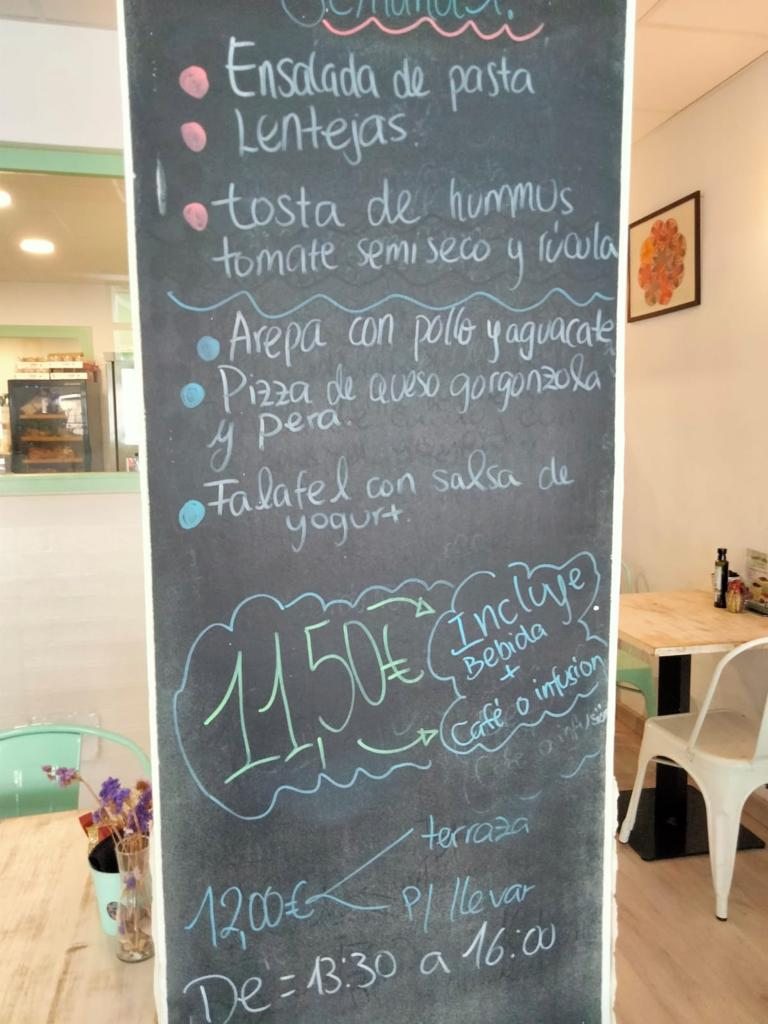 Semanal.
Ensalada de pasta
Lentejas.
tosta de hummus
tomate semiseco y rúcula
Arepa con pollo y aguacate
Pizza de queso gorgonzola
y pera.
Falafel con salsa de
yogurt.
11,50€
Incluye
Bebida
+
Café o infusión
terraza
12,00€
P/ llevar
De = 13:30 a 16:00